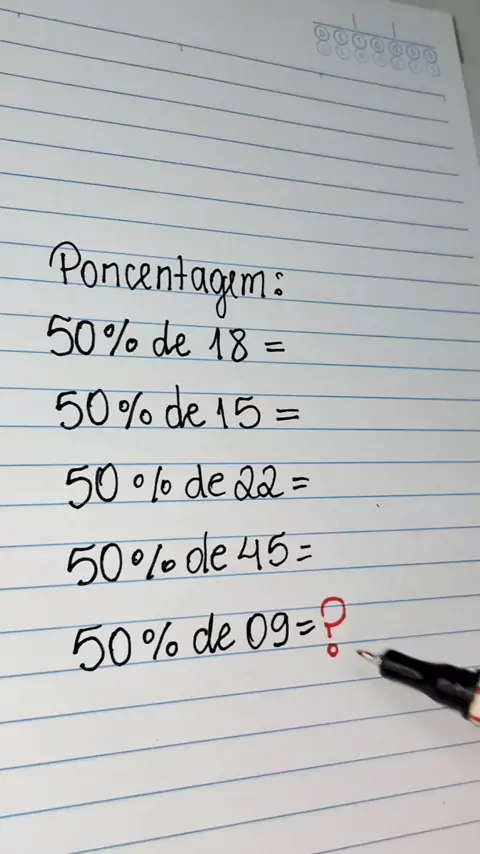 Porcentagem:
50% de 18 =
50% de 15 =
50% de 22 =
50% de 45 =
50% de 09 = ?